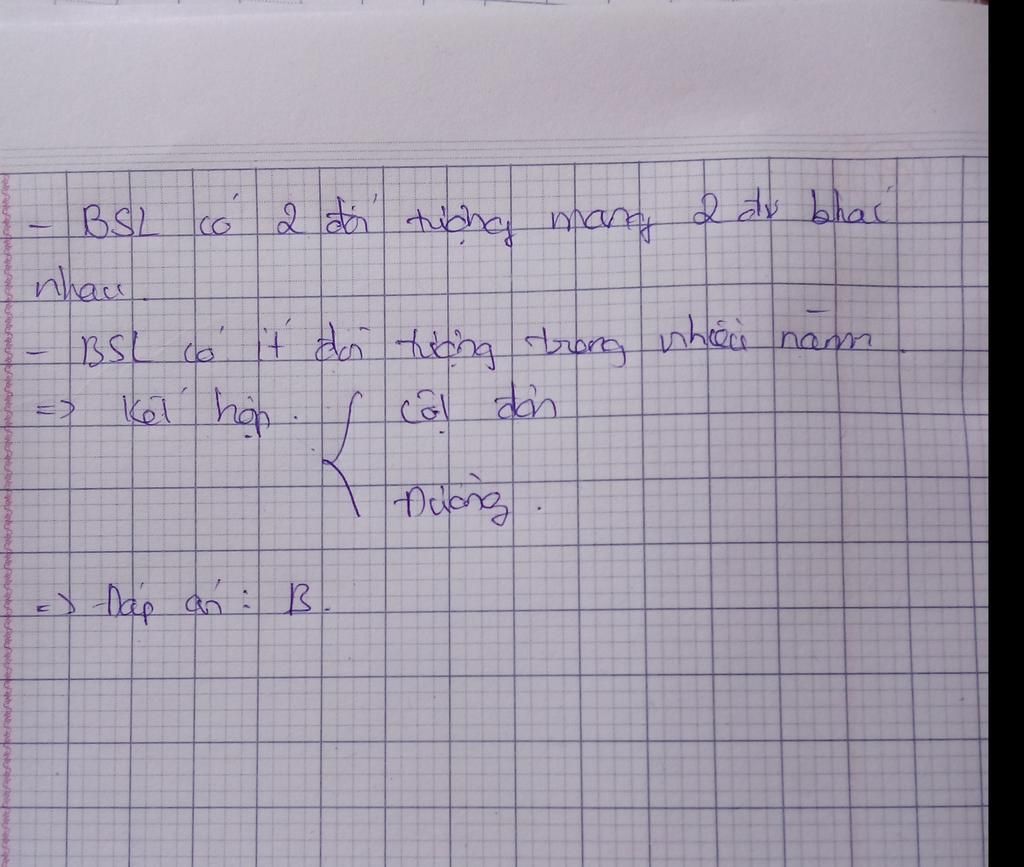 - BSL có 2 đối tượng mang 2 đv khác
nhau.
- BSL có ít đối tượng trong nhiều năm.
=> Kết hợp. { Cột đơn
Đường.
=> Đáp án: B.